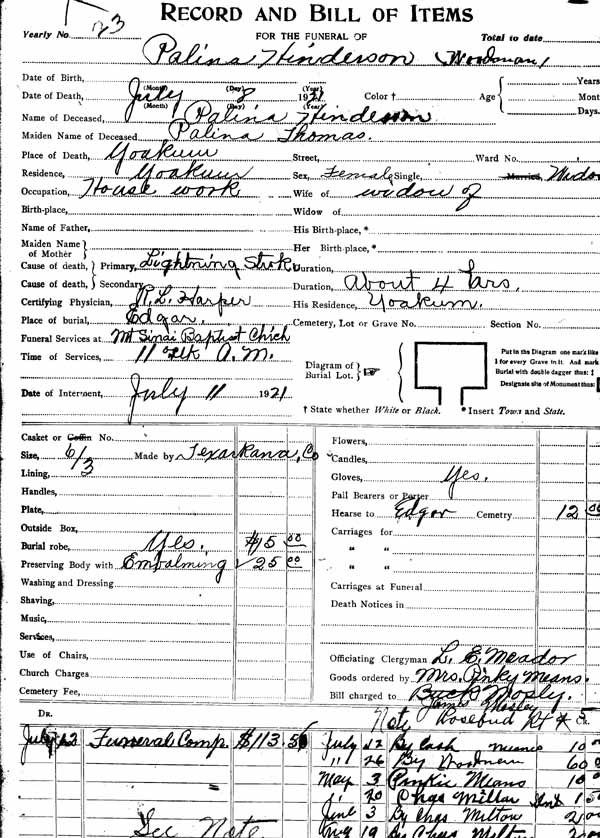 RECORD AND BILL OF ITEMS
Yearly No. 23 FOR THE FUNERAL OF Total to date
Palina Hinderson (Woodman)
Date of Birth, (Month) (Day) (Year) Years
Date of Death, July 9 1921 (Month) (Day) (Year) Color † Age Month
Days.
Name of Deceased, Palina Hinderson
Maiden Name of Deceased, Palina Thomas.
Place of Death, Yoakum Street, Ward No.
Residence, Yoakum Sex, Female Single, Married, Widow
Occupation, House work Wife of widow of
Birth-place, Widow of
Name of Father, His Birth-place, *
Maiden Name of Mother Her Birth-place, *
Cause of death, Primary, Lightning Stroke Duration,
Cause of death, Secondary Duration, About 4 hrs.
Certifying Physician, R.L. Harper His Residence, Yoakum.
Place of burial, Edgar. Cemetery, Lot or Grave No. Section No.
Funeral Services at Mt Sinai Baptist Chich
Time of Services, 11 A.M.
Diagram of Burial Lot. ☞
Put in the Diagram one mark like
I for every Grave in it. And mark
Burial with double dagger thus: ‡
Designate site of Monument thus:
Date of Interment, July 11 1921
† State whether White or Black. * Insert Town and State.
Casket or Coffin No. Flowers,
Size, 6/3 Made by Texarkana, Co Candles,
Lining, Gloves, Yes.
Handles, Pall Bearers or Porter
Plate, Hearse to Edgar Cemetry 12 00
Outside Box, Carriages for
Burial robe, Yes. $15 00 " "
Preserving Body with Embalming 25 00 " "
Washing and Dressing Carriages at Funeral
Shaving, Death Notices in
Music,
Services,
Use of Chairs, Officiating Clergyman L. E. Meador
Church Charges Goods ordered by Mrs. Pinky Means.
Cemetery Fee, Bill charged to Buck Mosly.
James Mosley
DR. Note Rosebud Rt # 5
July 12 Funeral Comp. $113.50 July 12 By Cash Means 10
" 26 By Woodmen 60
May 3 Pinkie Means 10
20 Chas Millar
June 3 By Chas Milton
See Note Aug 19 By Chas Milton